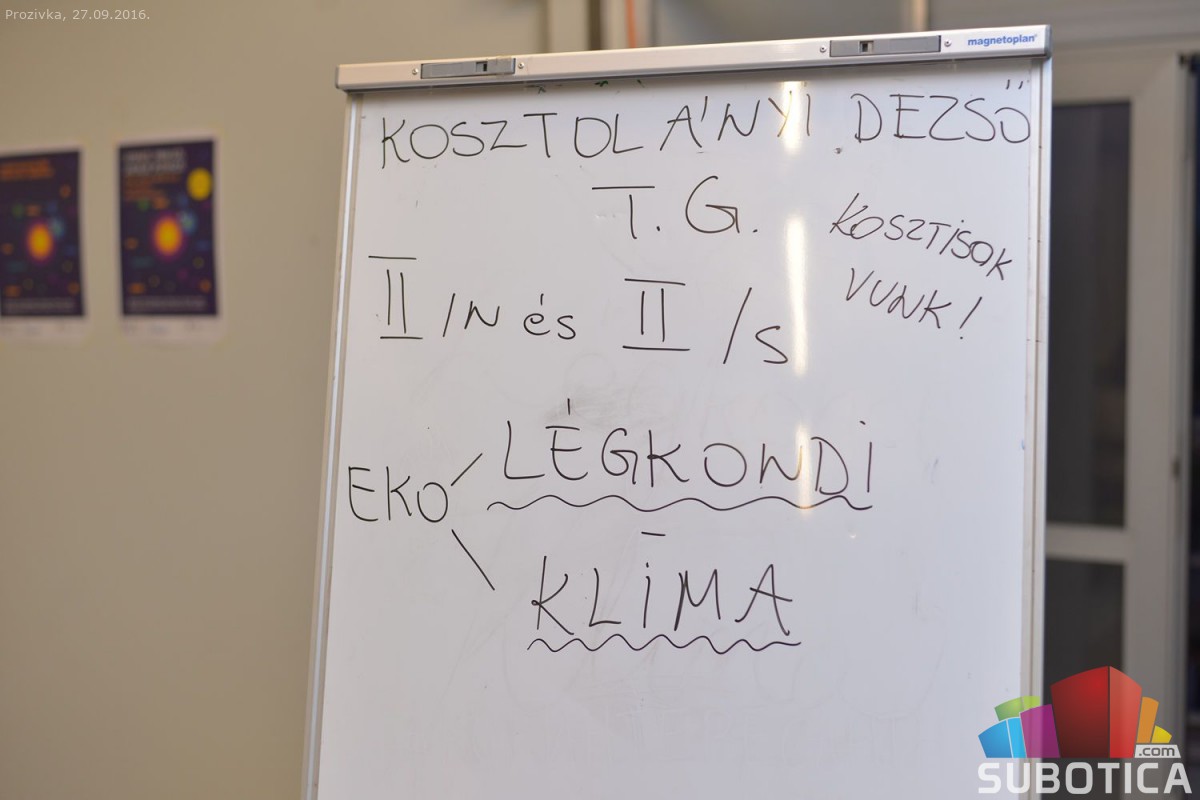 Prozivka, 27.09.2016.
magnetoplan
KOSZTOLÁNYI DEZSŐ
T.G.
KOSZTISOK
VUNK!
II/N és II/S
EKO
LÉGKONDI
KLIMA
.com
SUBOTICA